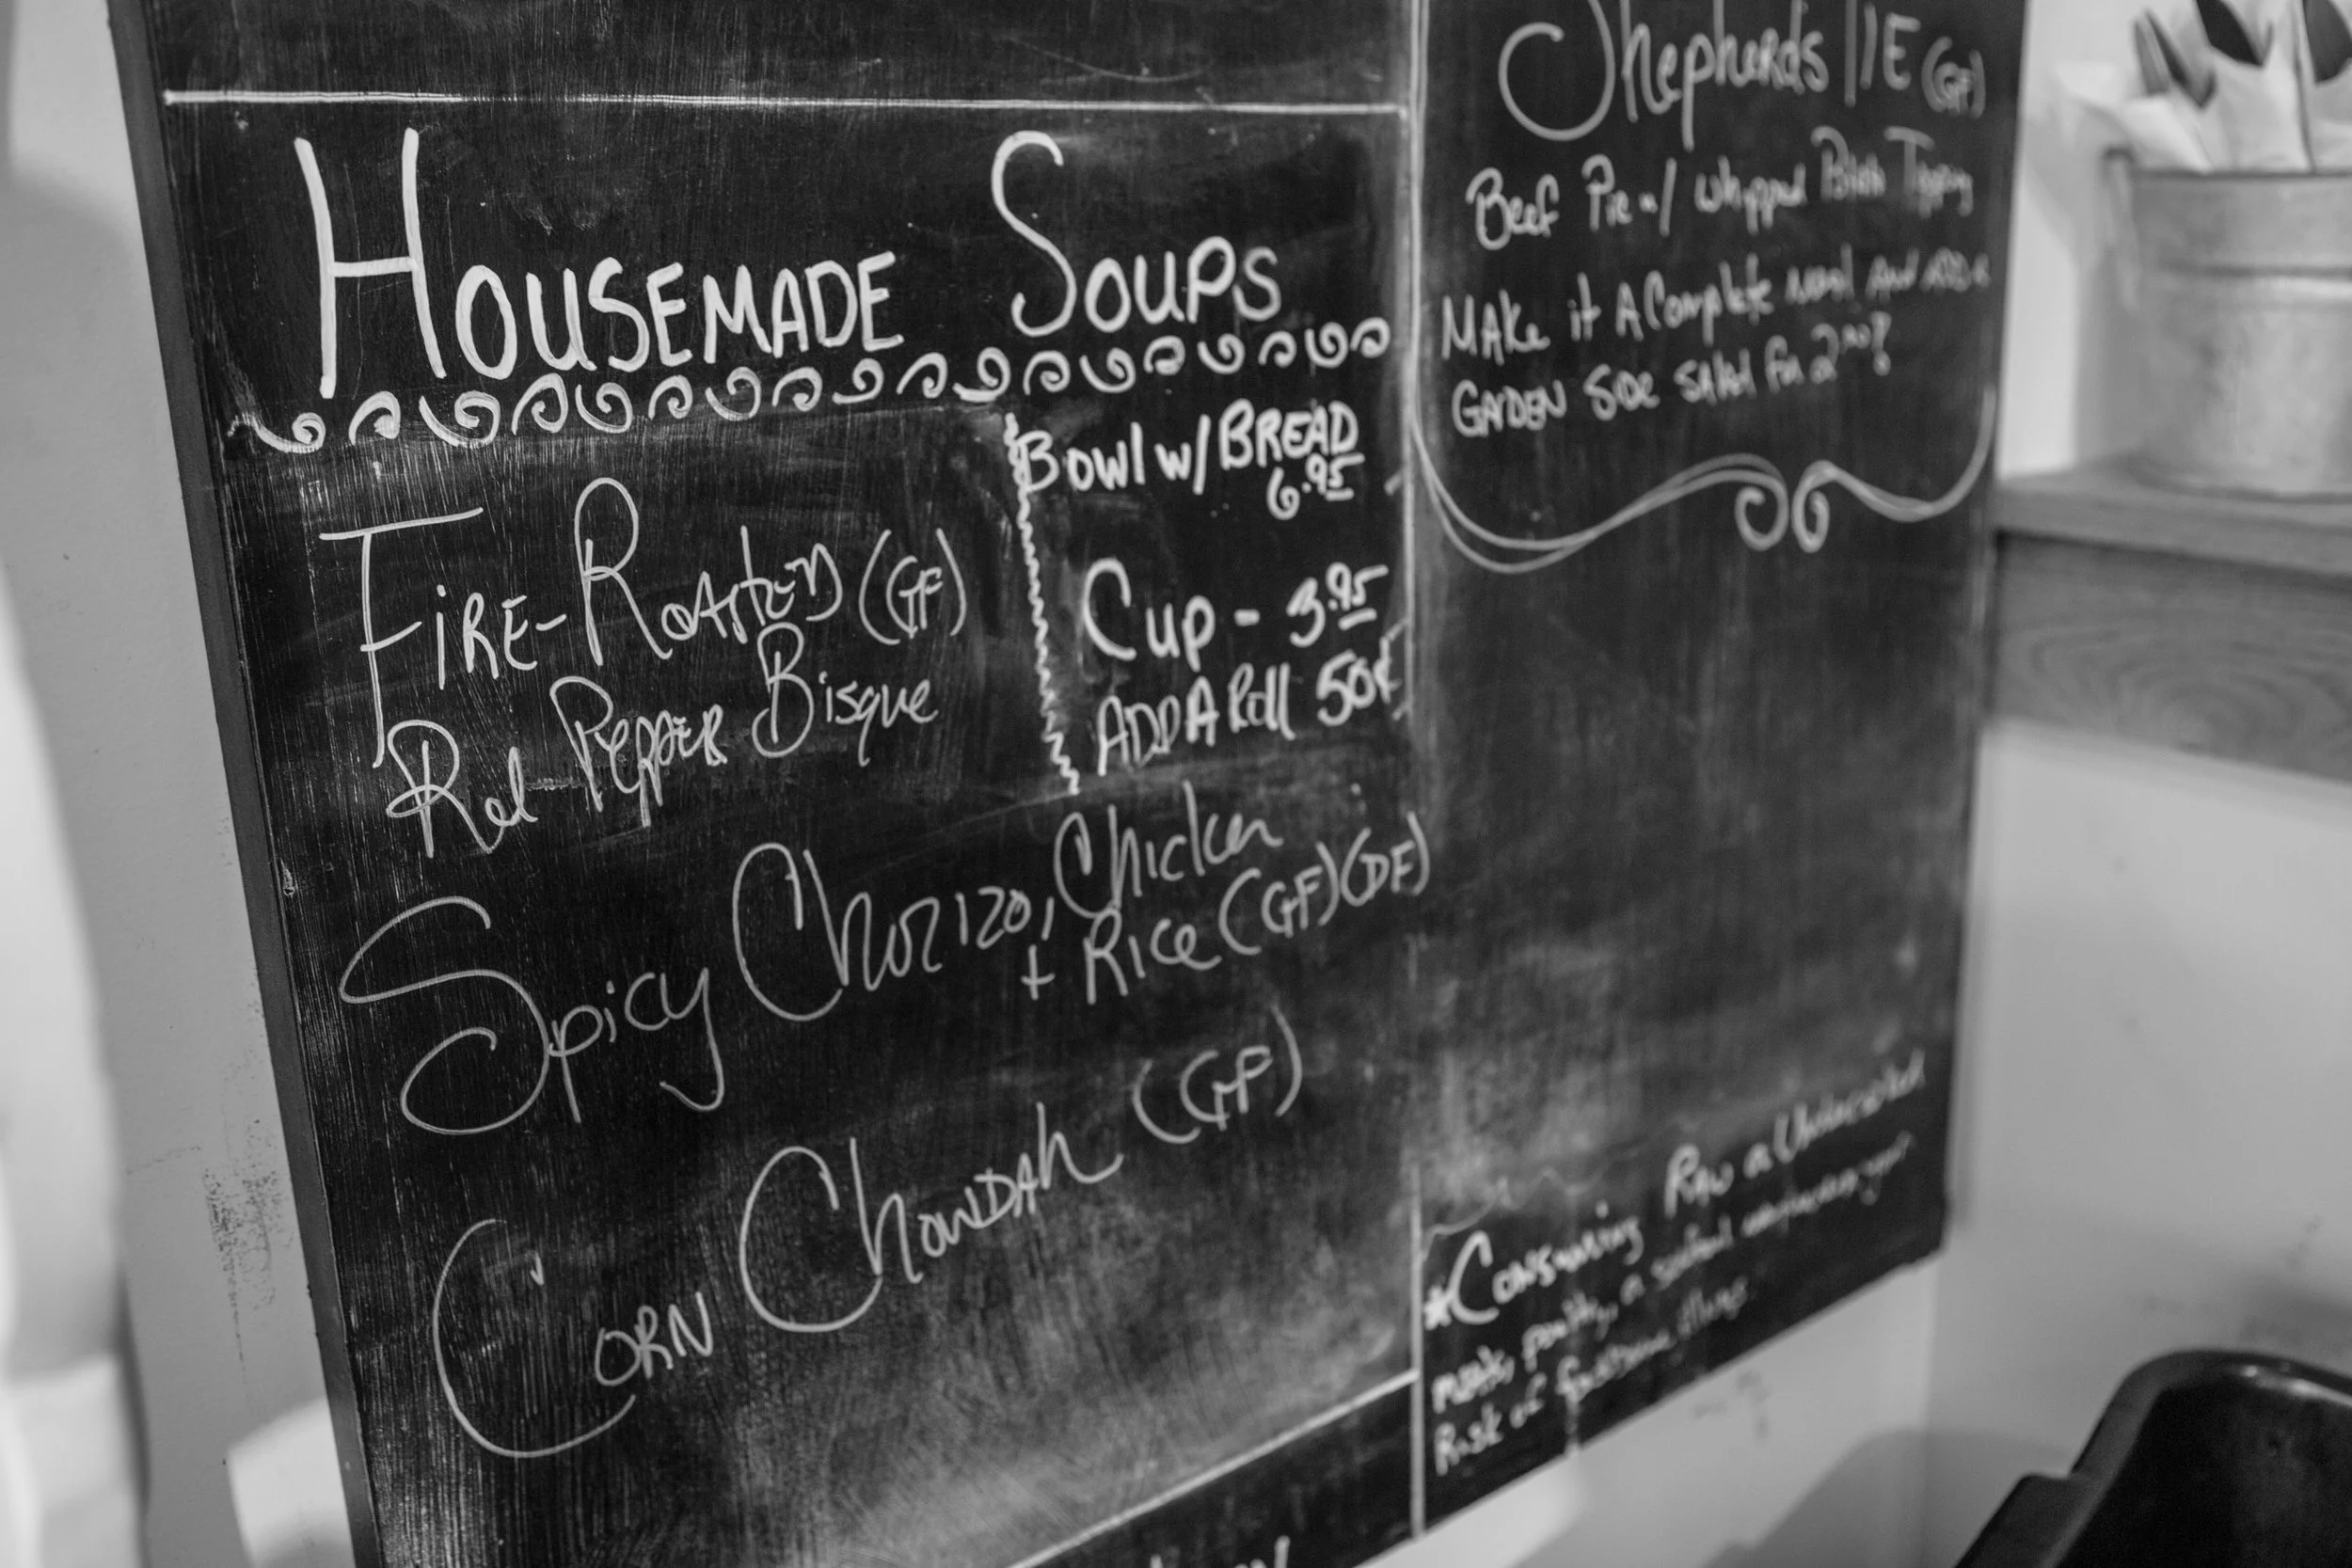 HOUSEMADE SOUPS
BOWL W/ BREAD
6.95
FIRE-ROASTED (GF)
Red PEPPER Bisque
Cup - 3.95
ADD A Roll 50¢
Spicy Chorizo, Chicken
+ Rice (GF) (DF)
CORN ChowDAh (GF)
Shepherds PIE (GF)
Beef Pie w/ whipped Potato Topping
MAke it A Complete meal AND ADD A
GARDEN SIDE SALAD for 2
*Consuming Raw or Undercooked
meats, poultry, or seafood may increase your
Risk of foodborne illness